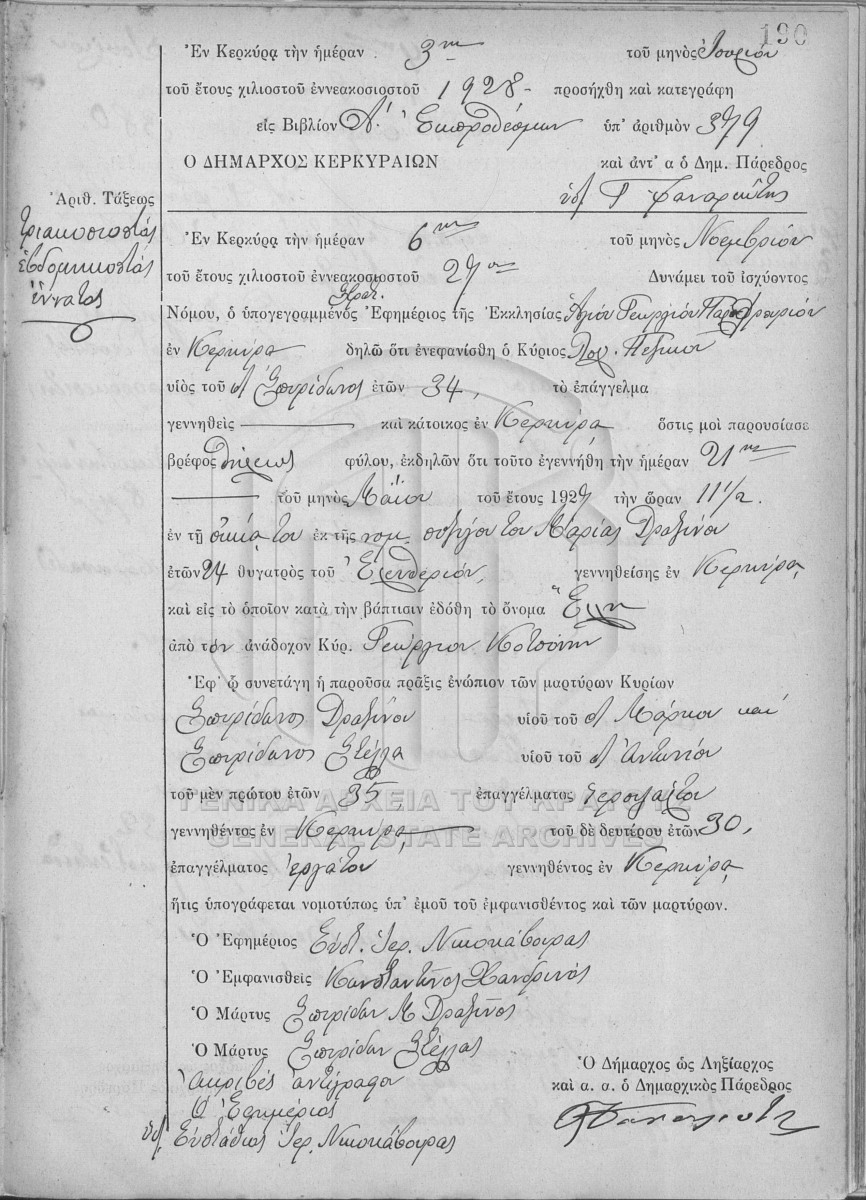 190
Ἐν Κερκύρᾳ τὴν ἡμέραν 3ην τοῦ μηνὸς
τοῦ ἔτους χιλιοστοῦ ἐννεακοσιοστοῦ 1928 - προσήχθη καὶ κατεγράφη
εἰς Βιβλίον Α΄. Ἐκπροθέσμων ὑπ' ἀριθμὸν 379
Ο ΔΗΜΑΡΧΟΣ ΚΕΡΚΥΡΑΙΩΝ καὶ ἀντ' α ὁ Δημ. Πάρεδρος
Ἀριθ. Τάξεως
τριακοσιοστός
ἑβδομηκοστός
ἔννατος
Ἐν Κερκύρᾳ τὴν ἡμέραν 6ην τοῦ μηνὸς Νοεμβρίου
τοῦ ἔτους χιλιοστοῦ ἐννεακοσιοστοῦ 27ου Δυνάμει τοῦ ἰσχύοντος
Στρατ.
Νόμου, ὁ ὑπογεγραμμένος Ἐφημέριος τῆς Ἐκκλησίας Ἁγίου Γεωργίου Φρουρίου
ἐν Κερκύρᾳ δηλῶ ὅτι ἐνεφανίσθη ὁ Κύριος
υἱὸς τοῦ Σπυρίδωνος ἐτῶν 34, τὸ ἐπάγγελμα
γεννηθεὶς καὶ κάτοικος ἐν Κερκύρᾳ ὅστις μοὶ παρουσίασε
βρέφος θήλεως φύλου, ἐκδηλῶν ὅτι τοῦτο ἐγεννήθη τὴν ἡμέραν 21ην
τοῦ μηνὸς Μαΐου τοῦ ἔτους 1927 τὴν ὥραν 11 1/2.
ἐν τῇ οἰκίᾳ του ἐκ τῆς νομ. συζύγου του Μαρίας Δραζίνου
ἐτῶν 24 θυγατρὸς τοῦ Ἐλευθερίου, γεννηθείσης ἐν Κερκύρᾳ
καὶ εἰς τὸ ὁποῖον κατὰ τὴν βάπτισιν ἐδόθη τὸ ὄνομα Ἕλλη
ἀπὸ τὸν ἀνάδοχον Κύρ. Γεώργιον
Ἐφ' ᾧ συνετάγη ἡ παροῦσα πρᾶξις ἐνώπιον τῶν μαρτύρων Κυρίων
Σπυρίδωνος Δραζίνου υἱοῦ τοῦ Μάρκου καὶ
Σπυρίδωνος Στέλλα υἱοῦ τοῦ Ἀντωνίου
τοῦ μὲν πρώτου ἐτῶν 35, ἐπαγγέλματος ἱεροψάλτου
γεννηθέντος ἐν Κερκύρᾳ τοῦ δὲ δευτέρου ἐτῶν 30,
ἐπαγγέλματος ἐργάτου γεννηθέντος ἐν Κερκύρᾳ
ἥτις ὑπογράφεται νομοτύπως ὑπ' ἐμοῦ τοῦ ἐμφανισθέντος καὶ τῶν μαρτύρων.
Ὁ Ἐφημέριος Εὐστ. Ἱερ. Νικοκάβουρας
Ὁ Ἐμφανισθεὶς Κωνσταντῖνος Χανδρινός
Ὁ Μάρτυς Σπυρίδων Μ Δραζῖνος
Ὁ Μάρτυς Σπυρίδων Στέλλας
Ὁ Δήμαρχος ὡς Ληξίαρχος
καὶ α. α. ὁ Δημαρχικὸς Πάρεδρος
Ἀκριβὲς ἀντίγραφον
Ὁ Ἐφημέριος
Εὐστάθιος Ἱερ. Νικοκάβουρας
ΓΕΝΙΚΑ ΑΡΧΕΙΑ ΤΟΥ ΚΡΑΤΟΥΣ
GENERAL STATE ARCHIVES